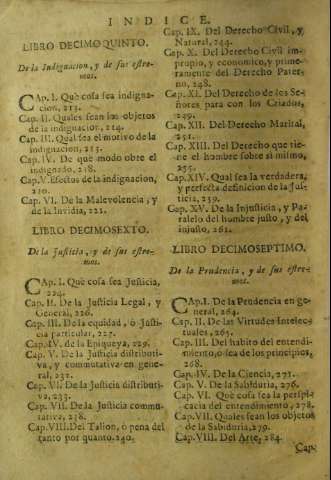 INDICE.
LIBRO DECIMOQUINTO.
De la Indignacion, y de sus estre-
mos.
CAp. I. Què cosa sea indigna-
cion, 213.
Cap. II. Quales sean los objetos
de la indignacion, 214.
Cap. III. Qual sea el motivo de la
indignacion, 215.
Cap. IV. De què modo obre el
indignado, 218.
Cap. V. Efectos de la indignacion,
220.
Cap. VI. De la Malevolencia, y
de la Invidia, 221.
LIBRO DECIMOSEXTO.
De la Justicia, y de sus estre-
mos.
CAp. I. Què cosa sea Justicia,
224.
Cap. II. De la Justicia Legal, y
General, 226.
Cap. III. De la equidad, ò Justi-
cia particular, 227.
Cap. IV. de la Epiqueya, 229.
Cap. V. De la Justicia distributi-
va, y commutativa en gene-
ral, 232.
Cap. VI. De la Justicia distributi-
va, 233.
Cap. VII. De la Justicia commu-
tativa, 238.
Cap. VIII. Del Talion, ò pena del
tanto por quanto, 240.
Cap. IX. Del Derecho Civil, y
Natural, 244.
Cap. X. Del Derecho Civil im-
propio, y economico, y prime-
ramente del Derecho Pater-
no, 248.
Cap. XI. Del Derecho de los Se-
ñores para con los Criados,
249.
Cap. XII. Del Derecho Marital,
251.
Cap. XIII. Del Derecho que tie-
ne el hombre sobre si mismo,
255.
Cap. XIV. Qual sea la verdadera,
y perfecta definicion de la Jus-
ticia, 259.
Cap. XV. De la Injusticia, y Pa-
ralelo del hombre justo, y del
injusto, 261.
LIBRO DECIMOSEPTIMO.
De la Prudencia, y de sus estre-
mos.
CAp. I. De la Prudencia en ge-
neral, 264.
Cap. II. De las Virtudes Intelec-
tuales, 265.
Cap. III. Del habito del entendi-
miento, ò sea de los principios,
268.
Cap. IV. De la Ciencia, 271.
Cap. V. De la Sabiduria, 276.
Cap. VI. Què cosa sea la perspi-
cacia del entendimiento, 278.
Cap. VII. Quales sean los objetos
de la Sabiduria, 279.
Cap. VIII. Del Arte, 284.
Cap.